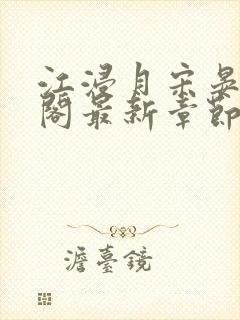 江浸月宋晏
阁最新章节
澹臺鏡